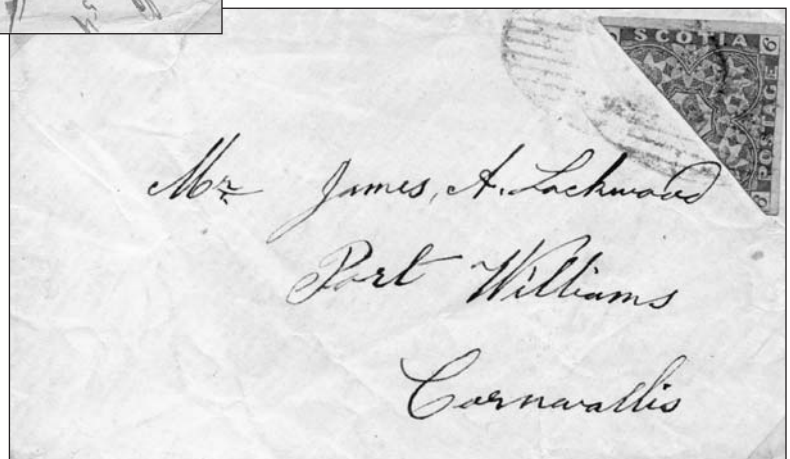 SCOTIA 6
POSTAGE
Mr James, A. Lockwood
Port Williams
Cornwallis